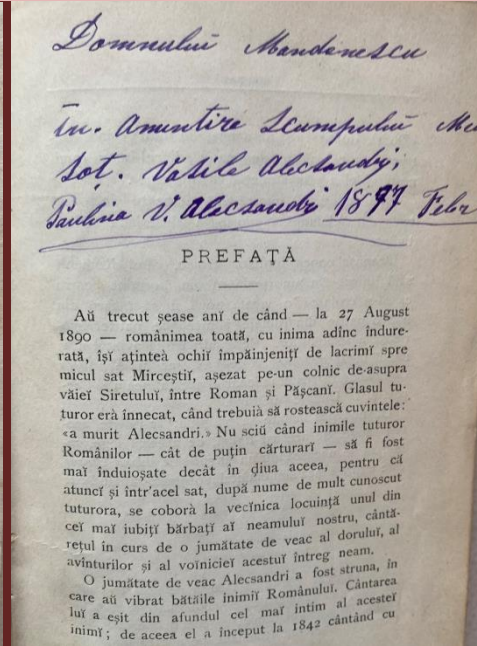 Domnului Mandenescu
în. Amintire Scumpului
Soț. Vasile Alecsandri;
Paulina V. Alecsandri 1897 Febr
PREFAȚĂ
Aŭ trecut șease anĭ de când — la 27 August
1890 — românimea toată, cu inima adînc îndure-
rată, îșĭ ațintea ochiĭ împăinjenițĭ de lacrimĭ spre
micul sat Mirceștiĭ, așezat pe-un colnic de-asupra
văieĭ Siretuluĭ, între Roman și Pășcanĭ. Glasul tu-
turor erà înnecat, când trebuià să rostească cuvintele:
«a murit Alecsandri.» Nu sciŭ când inimile tuturor
Românilor — cât de puțin cărturarĭ — să fi fost
maĭ înduioșate decât în ḑiua aceea, pentru că
atuncĭ și într'acel sat, după nume de mult cunoscut
tuturora, se coborà la vecĭnica locuință unul din
ceĭ maĭ iubițĭ bărbațĭ aĭ neamuluĭ nostru, cântă-
rețul în curs de o jumătate de veac al doruluĭ, al
avînturilor și al voĭnicieĭ acestuĭ întreg neam.
O jumătate de veac Alecsandri a fost struna, în
care aŭ vibrat bătăile inimiĭ Românuluĭ. Cântarea
luĭ a eșit din afundul cel maĭ intim al acesteĭ
inimĭ; de aceea el a început la 1842 cântând cu